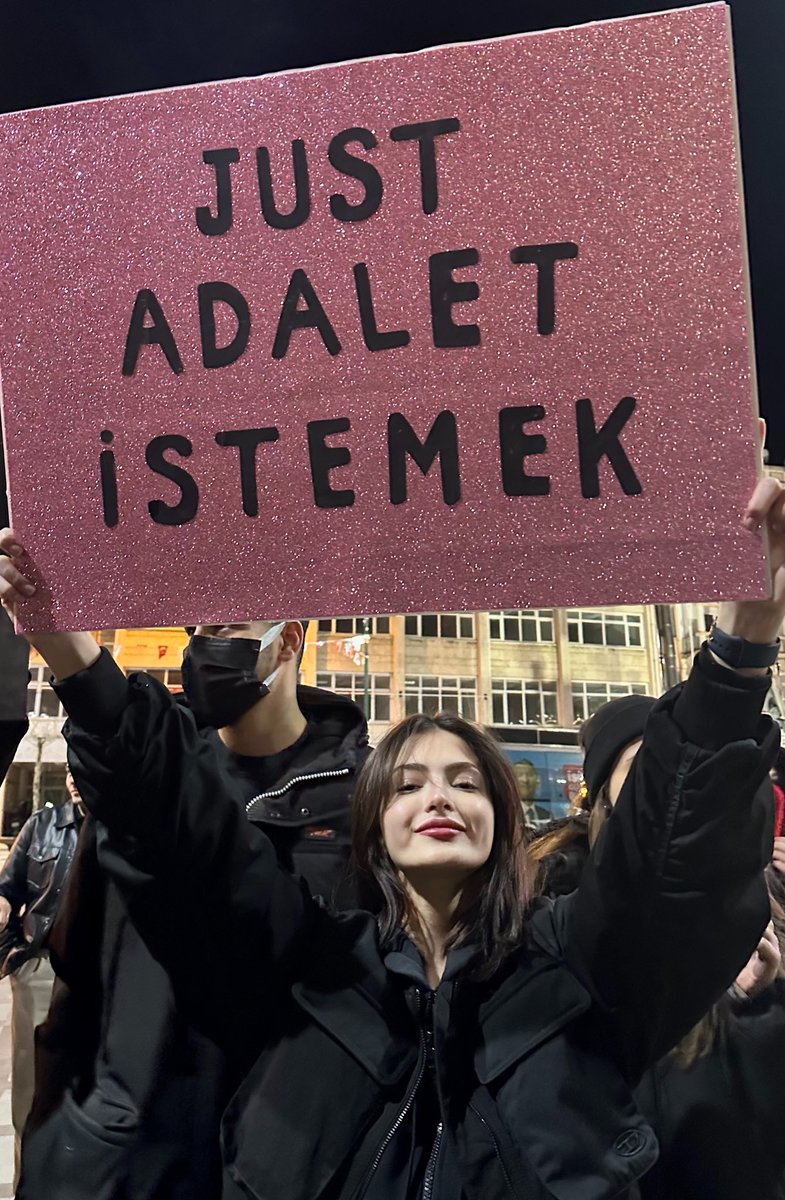 JUST
ADALET
İSTEMEK